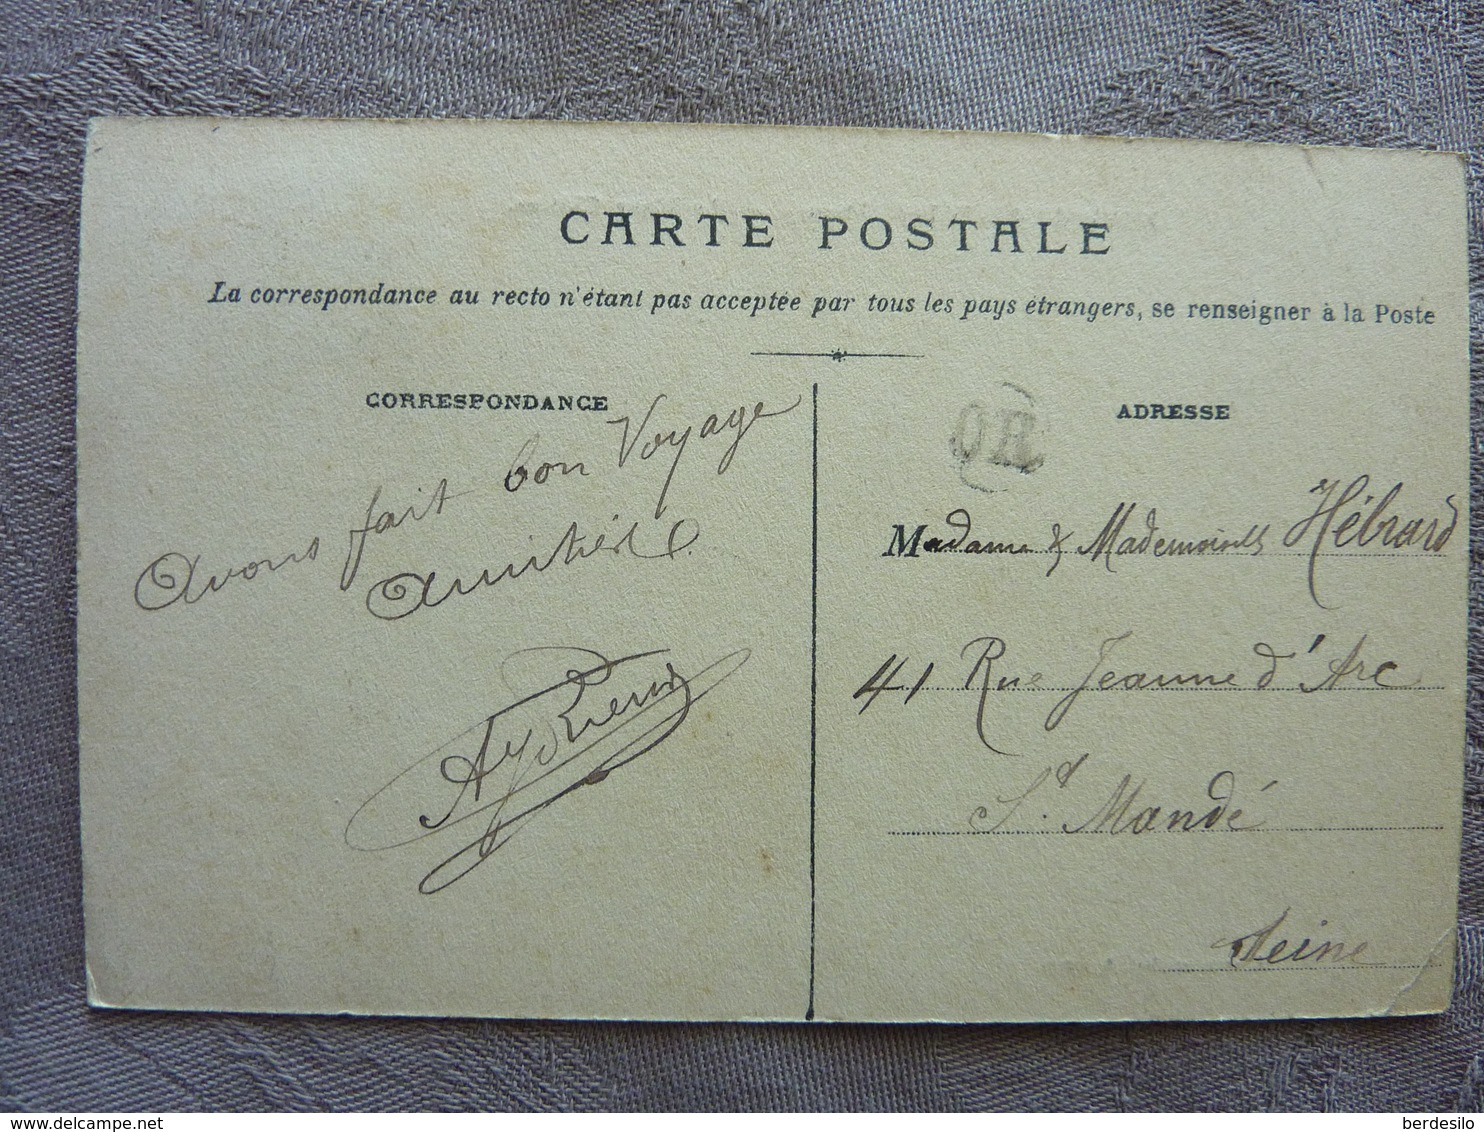 CARTE POSTALE
La correspondance au recto n'étant pas acceptée par tous les pays étrangers, se renseigner à la Poste
CORRESPONDANCE
Avons fait bon Voyage
Amitiés
ADRESSE
OR
Madame & Mademoiselle Hébrard
41 Rue Jeanne d'Arc
St. Mandé
Seine
berdesilo